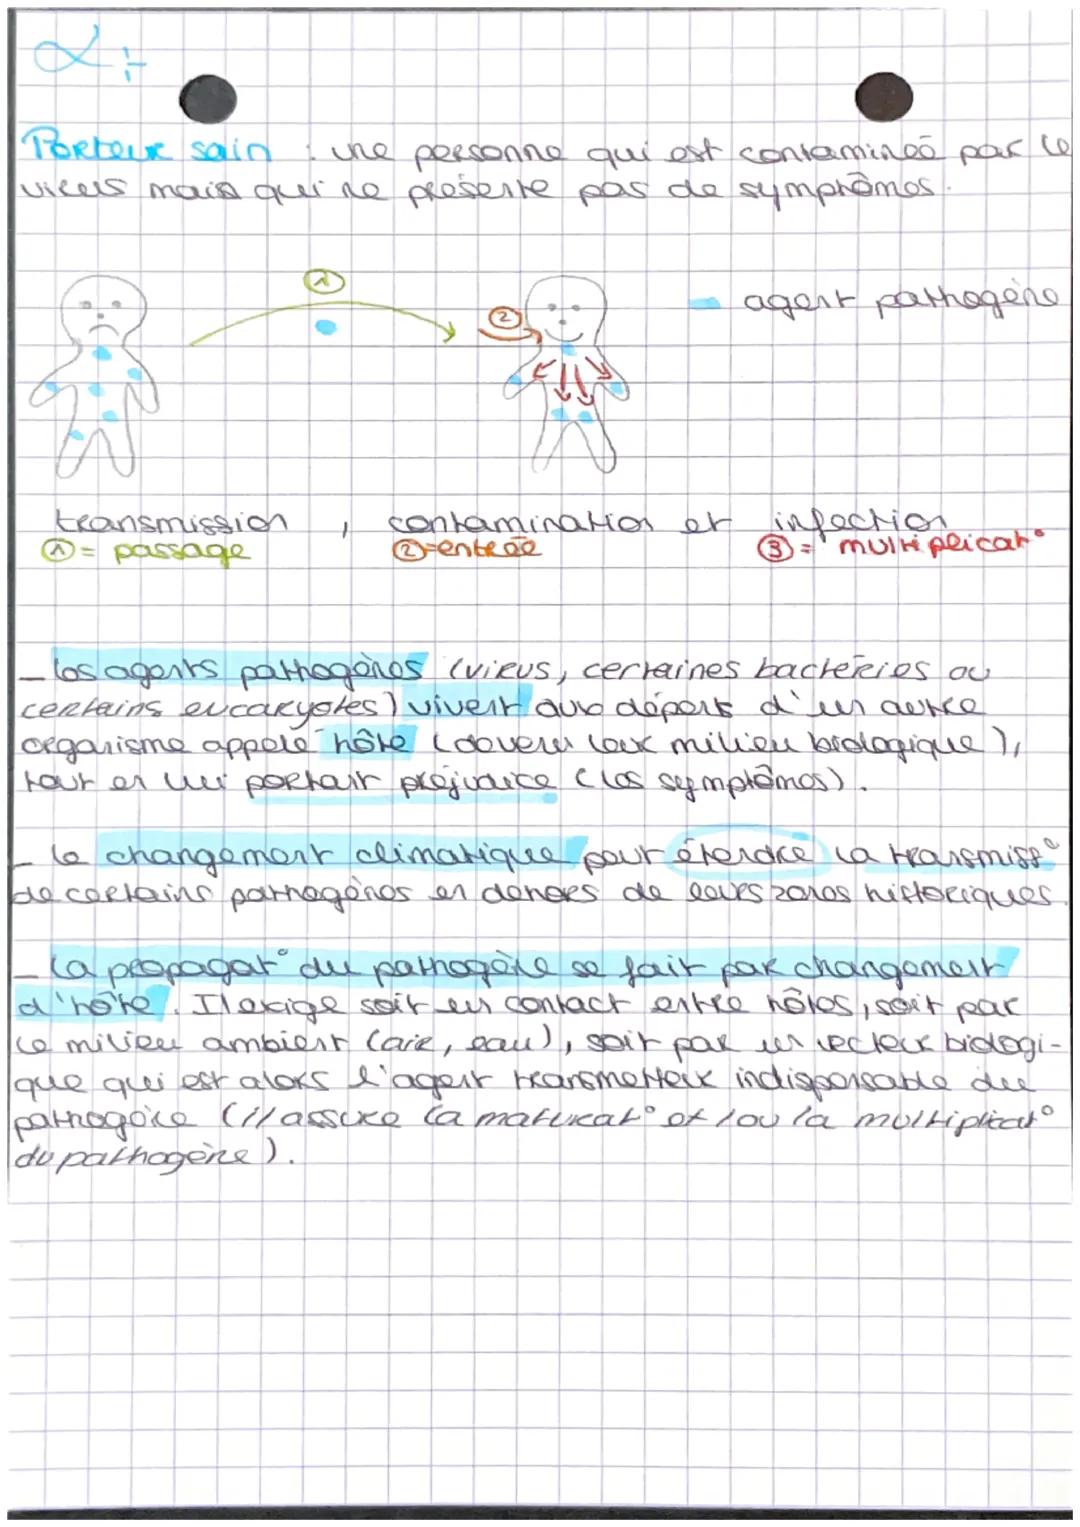 Porteur sain : une personne qui est contaminée par le
virus mais qui ne présente pas de symptômes.
①
②
agent pathogène
transmission , contamination et infection
① = passage ② = entrée ③ = multiplicat°
- les agents pathogènes (virus, certaines bactéries ou
certains eucaryotes) vivent aux dépens d'un autre
organisme appelé hôte (devenu leur milieu biologique),
tout en lui portant préjudice (les symptômes).
- le changement climatique peut étendre la transmiss°
de certains pathogènes en dehors de leurs zones historiques.
- la propagat° du pathogène se fait par changement
d'hôte. Il exige soit un contact entre hôtes, soit par
le milieu ambient (air, eau), soit par un vecteur biologi-
que qui est alors l'agent transmetteur indispensable du
pathogène (il assure la maturat° et / ou la multiplicat°
du pathogène).